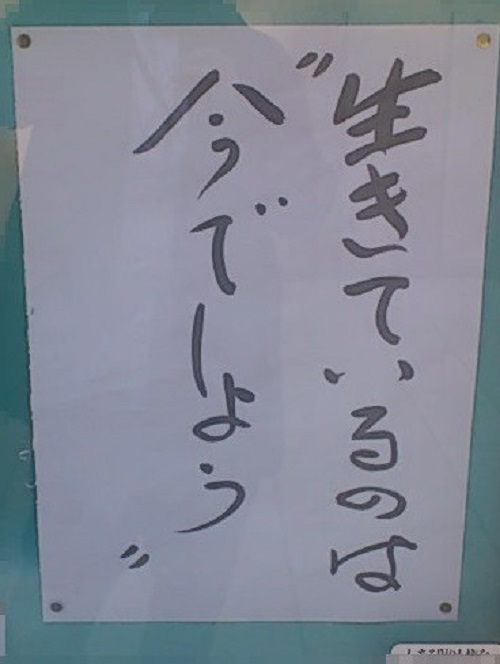 "生きているのは
今でしょう"